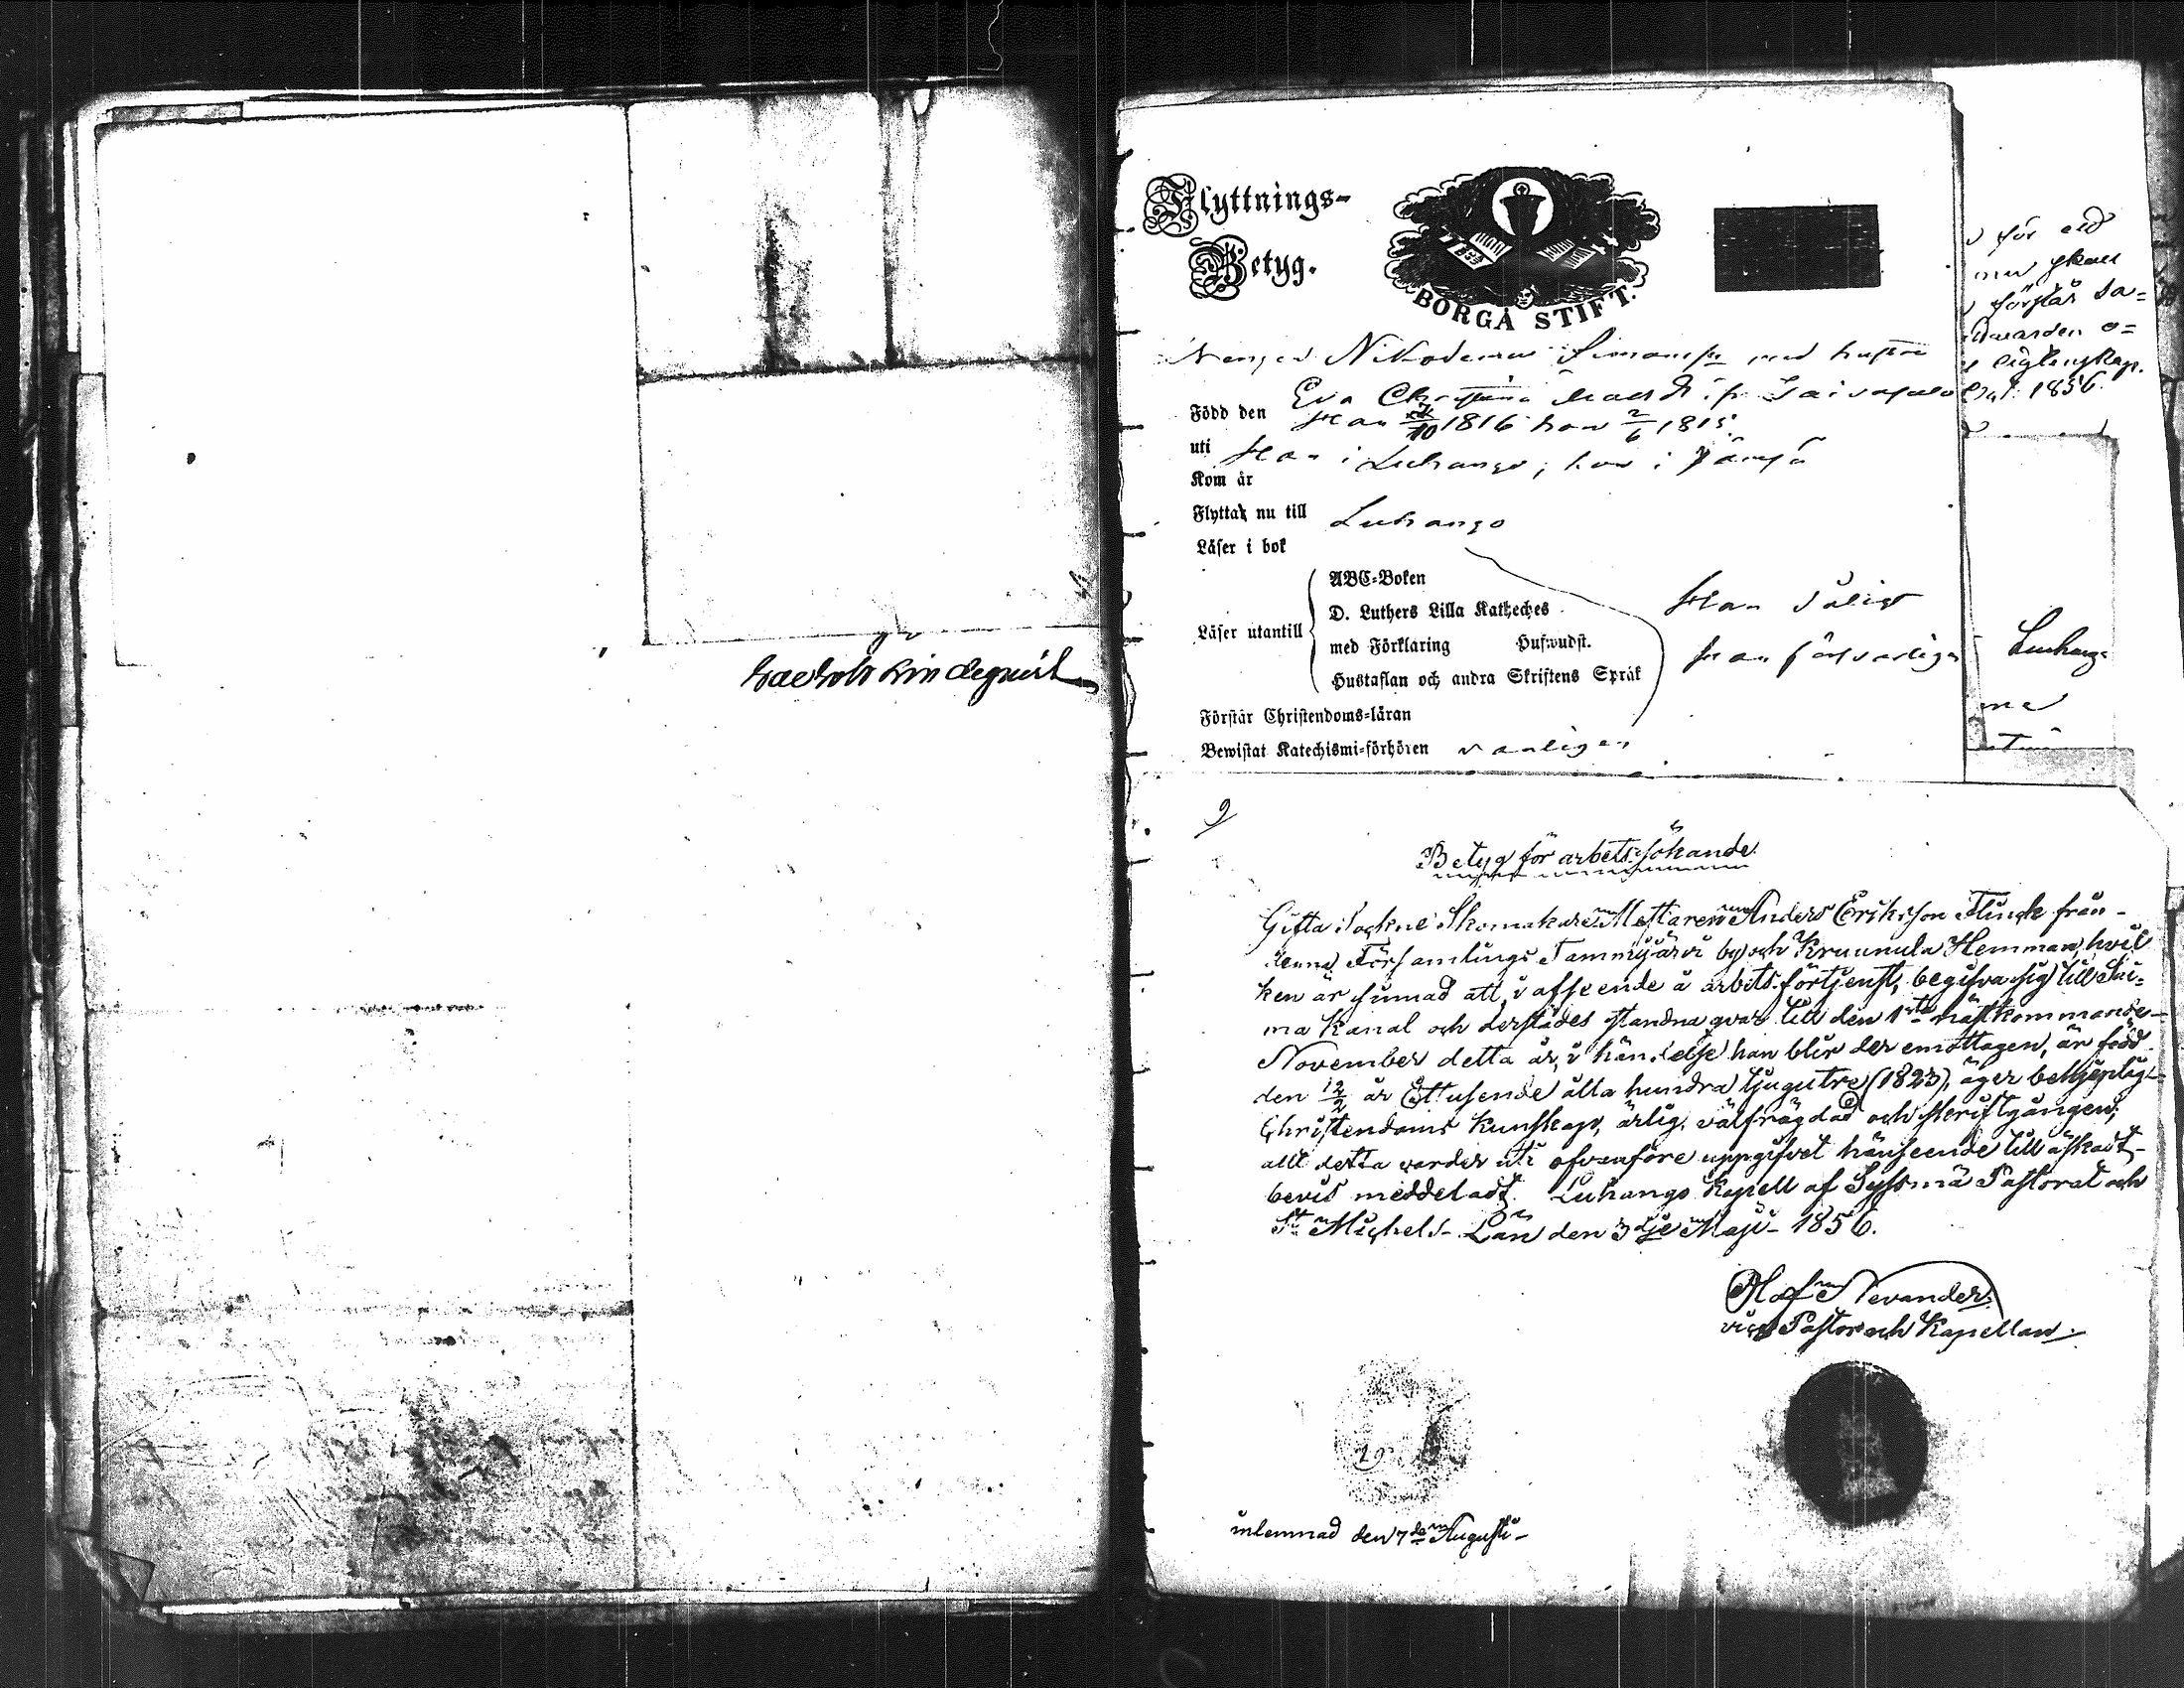 Lindeqvist
Flyttnings-
Betyg.
1834
BORGÅ STIFT.
Nikodemus Simonss. med hustru
Eva Christina
Född den Han 10 1816 hon 2/6 1815
uti Han i Luhango, hon i Jämsä
Kom år
Flyttar nu till Luhango
Läser i bok
ABC-Boken
D. Luthers Lilla Katheches
Läser utantill
med Förklaring Hufwudst.
Hustaflan och andra Skriftens Språk
Han dåligt
Hon försvarligen
Förstår Christendoms-läran
Bewistat Katechismi-förhören vanligen
för
förstår
1856.
Luhango
9
Betyg för arbetssökande.
Gifta Sockne Skomakare Mästaren Anders Eriksson Flinck från
denna Församlings Tammijärvi by och Kruunula Hemman, hvil
ken är sinnad att, i afseende å arbets förtjenst, begifva sig till Sai=
ma Kanal och derstädes stadna qvar till den 1sta nästkommande
November detta år, i händelse han blir der emottagen, är född
den 12/2 år Ettusende åtta hundra tjugutre (1823), äger behjeplig
Christendoms kunskap, ärlig, välfrägdad och skriftgången;
allt detta varder uti ofvanföre uppgifvet hänseende till äskadt
bevis meddeladt. Luhango Kapell af Sysmä Pastorat och
St Michels Län den 3dje Maji 1856.
Olof Nevander.
vice Pastor och Kapellan.
19
inlemnad den 7de Augusti